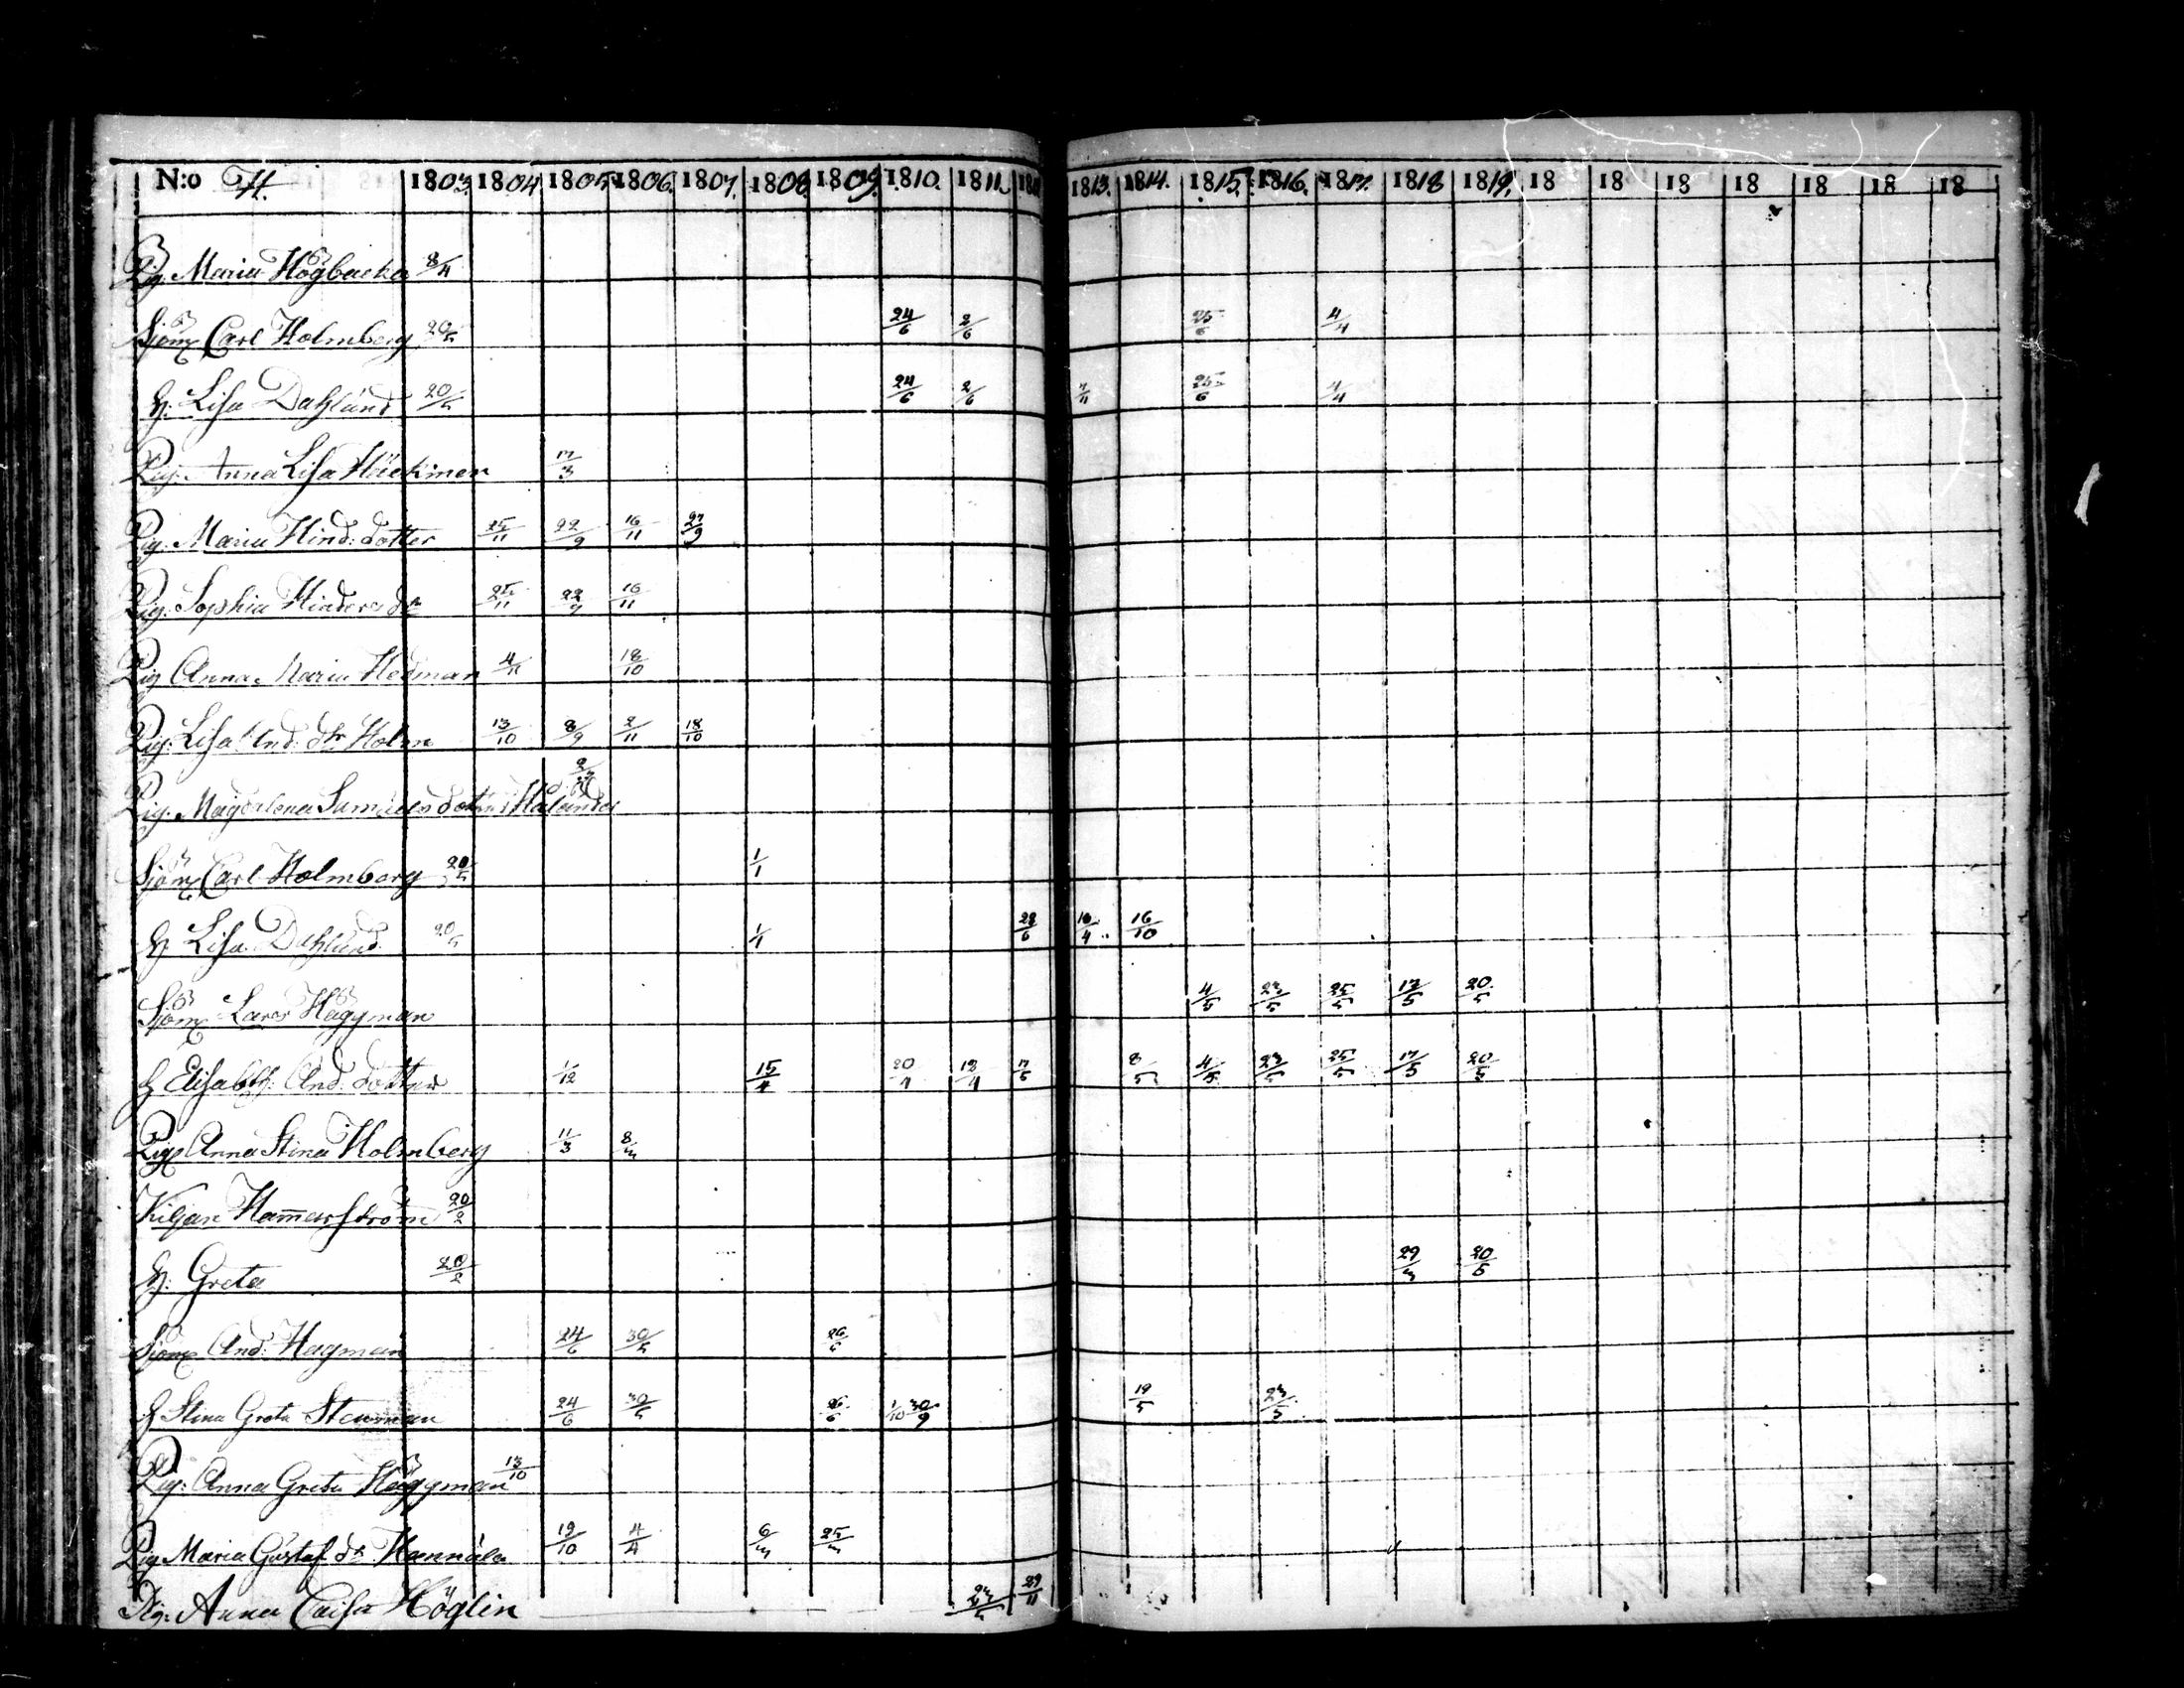 N:o H. 1803. 1804 1805 1806. 1807. 1808. 1809. 1810. 1811. 1813. 1814. 1815. 1816. 1817. 1818 1819. 18 18 18 18 18 18 18
Pig. Maria Högbacka 8/4
Sjöm Carl Holmberg 20/5 24/6 2/6 25/6 4/4
H. Lisa Dahlund 20/5 24/6 2/6 7/11 25/6 4/4
Pig. Anna Lisa 17/3
Pig. Maria Hind: dotter 25/11 22/9 16/11 27/9
Pig. Sophia Hinders dr 25/11 22/9 16/11
Pig Anna Maria Hedman 4/11 18/10
Pig. Lisa And: dr Holm 13/10 8/9 2/11 18/10
Pig. Magdalena Samuels dotter
Sjöm Carl Holmberg 20/5 1/1
H Lisa Dahlund 20/5 1/1 28/6 16/4 16/10
Sjöm Lars Häggman 4/5 23/5 25/5 17/5 20/5
H Elisabth: And: dotter 1/12 15/4 20/4 18/4 17/5 8/5 4/5 23/5 25/5 17/5 20/5
Pig Anna Stina Holmberg 11/3 8/3
Kiljan Hamarström 20/2
H: Greta 20/2 29/3 20/5
Sjöm And: Hagman 24/6 30/5 26/6
H Stina Greta Stenman 24/6 30/5 26/6 1/10 30/9 19/5 23/5
Pig: Anna Greta Häggman 13/10
Pig Maria Gustaf dr Hannula 19/10 4/4 6/3 25/3
Pig: Anna Caisa Höglin 23/5 29/11